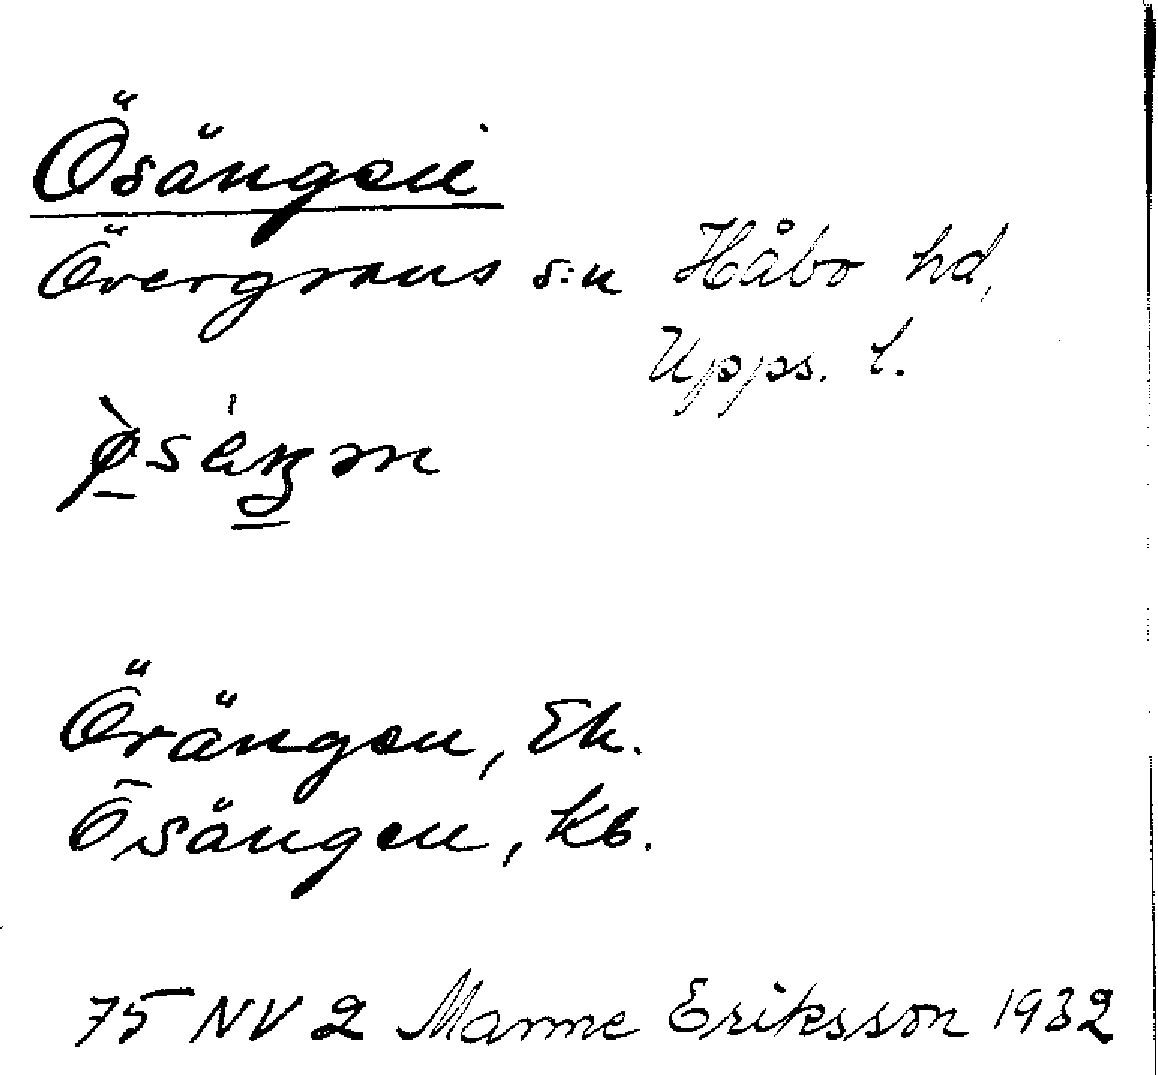 Ösängen
Övergrans s:n Håbo hd,
Upps. l.
Örängen, Ek.
Ösängen, Kb.
75 NV 2 Manne Eriksson 1932